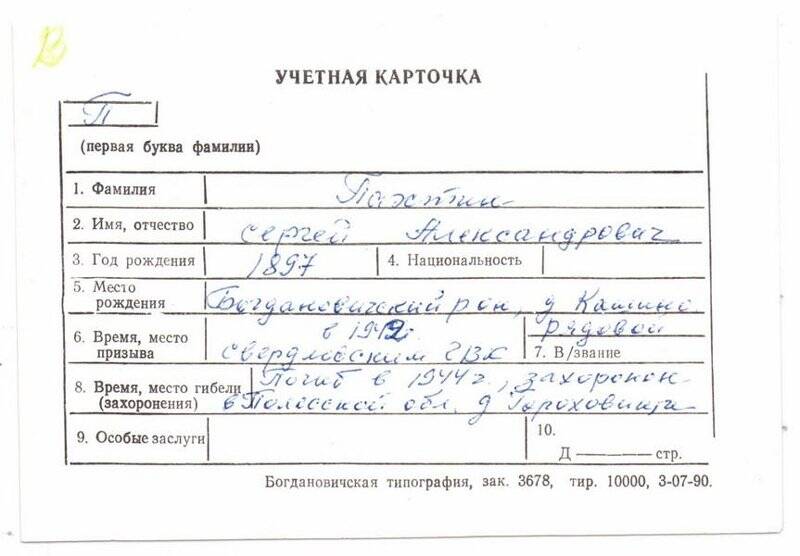 В
УЧЕТНАЯ КАРТОЧКА
П
(первая буква фамилии)
1. Фамилия Пахтин
2. Имя, отчество Сергей Александрович
3. Год рождения 1897 4. Национальность
5. Место рождения Богдановичский рон, д Кашино
6. Время, место призыва в 1942г. Свердловским ГВК
рядовой
7. В/звание
8. Время, место гибели (захоронения) Погиб в 1944 г., захоронен
в Полосской обл. д Гороховищи
9. Особые заслуги
10.
Д ——— стр.
Богдановичская типография, зак. 3678, тир. 10000, 3-07-90.